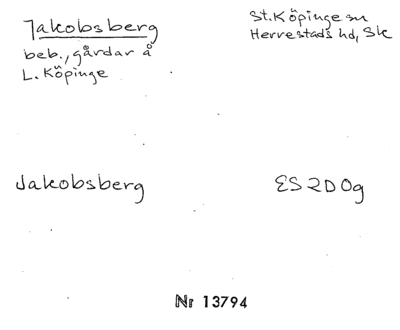 Jakobsberg
beb., gårdar å
L. Köpinge
St. Köpinge sn
Herrestads hd, Sk
Jakobsberg
ES 2D 0g
Nr 13794